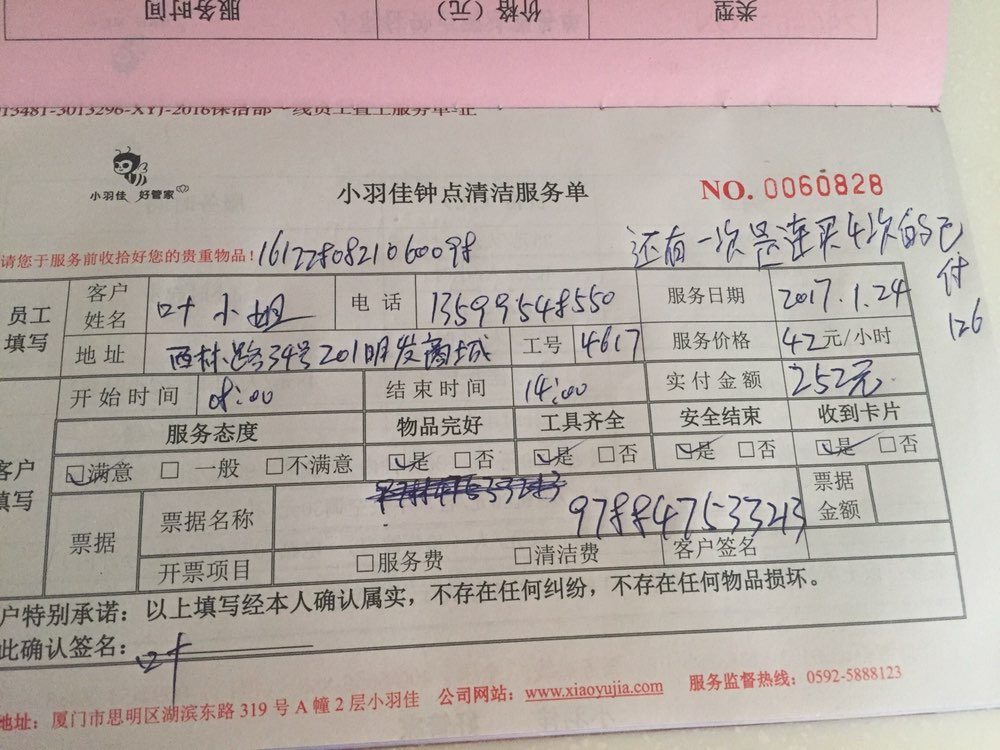 类型 价格（元） 服务时间
013481-3013296-XYJ-2016保洁部一线员工宜工服务单-正
小羽佳 好管家
小羽佳钟点清洁服务单
NO. 0060828
请您于服务前收拾好您的贵重物品！
还有一次是连买4次的已付126
员工填写 客户姓名 叶小姐 电话 13599548550 服务日期 2017.1.24
地址 西林路34号201明发商城 工号 4617 服务价格 42元/小时
开始时间 08:00 结束时间 14:00 实付金额 252元
客户填写 服务态度 物品完好 工具齐全 安全结束 收到卡片
☑满意 □一般 □不满意 ☑是 □否 ☑是 □否 ☑是 □否 ☑是 □否
票据 票据名称 978847533213 票据金额
开票项目 □服务费 □清洁费 客户签名
户特别承诺：以上填写经本人确认属实，不存在任何纠纷，不存在任何物品损坏。
此确认签名：叶
地址：厦门市思明区湖滨东路 319 号 A 幢 2 层小羽佳 公司网站：www.xiaoyujia.com 服务监督热线：0592-5888123